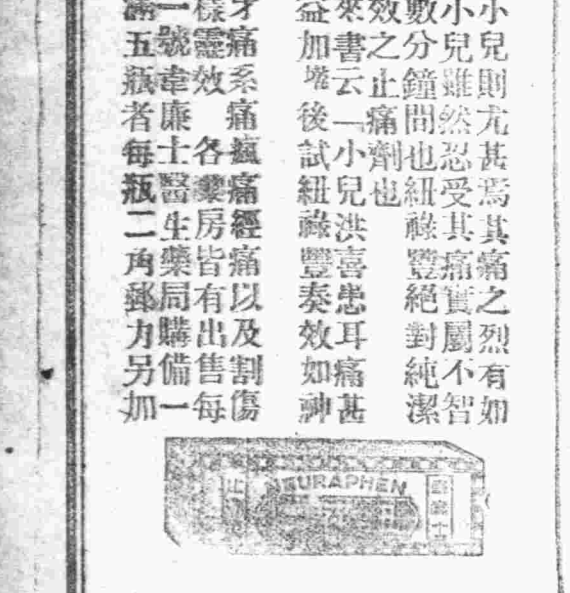 小兒則尤甚焉其痛之烈有如
小兒雖然忍受其痛實屬不智
數分鐘間也紐祿豐絕對純潔
效之止痛劑也
來書云「小兒洪喜患耳痛甚
益加增後試紐祿豐奏效如神
牙痛系痛瘋痛經痛以及割傷
樣靈效 各藥房皆有出售每
一號韋廉士醫生藥局購備一
滿五瓶者每瓶二角郵力另加
NEURAPHEN